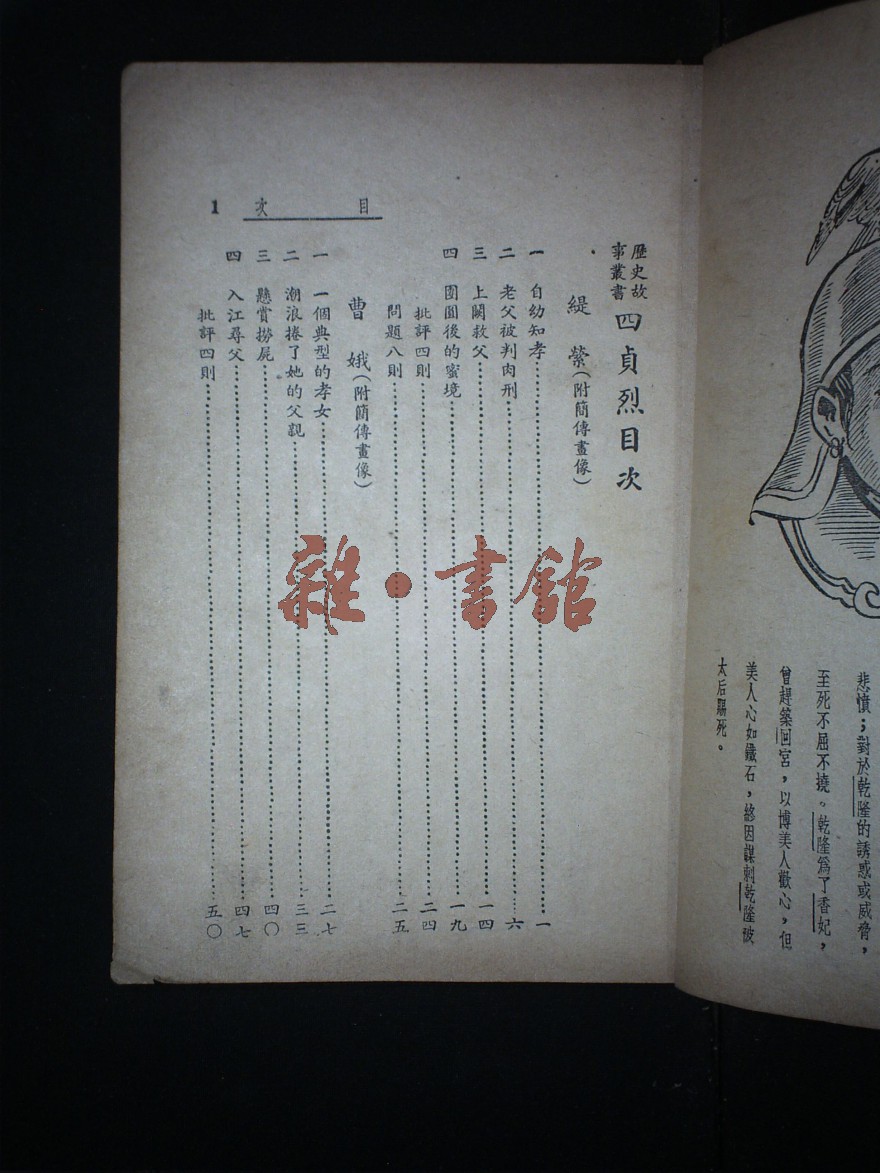 悲憤；對於乾隆的誘惑或威脅，
至死不屈不撓。乾隆爲了香妃，
曾趕築回宮，以博美人歡心，但
美人心如鐵石，終因謀刺乾隆被
太后賜死。
目次 1
歷史故事叢書 四貞烈目次
緹縈（附簡傳畫像）
一 自幼知孝……一
二 老父被判肉刑……六
三 上闕救父……一四
四 團圓後的蜜境……一九
批評四則……二四
問題八則……二五
曹娥（附簡傳畫像）
一 一個典型的孝女……二七
二 潮浪捲了她的父親……三三
三 懸賞撈屍……四〇
四 入江尋父……四七
批評四則……五〇
雜·書館